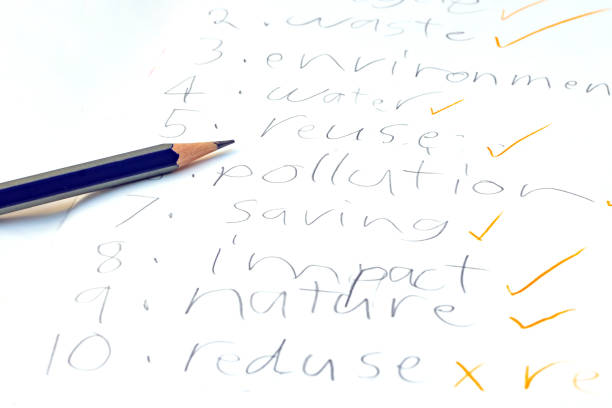 2. waste ✓
3. environmen
4. water ✓
5. reuse ✓
. pollution
7. saving ✓
8. impact ✓
9. nature ✓
10. reduse x re